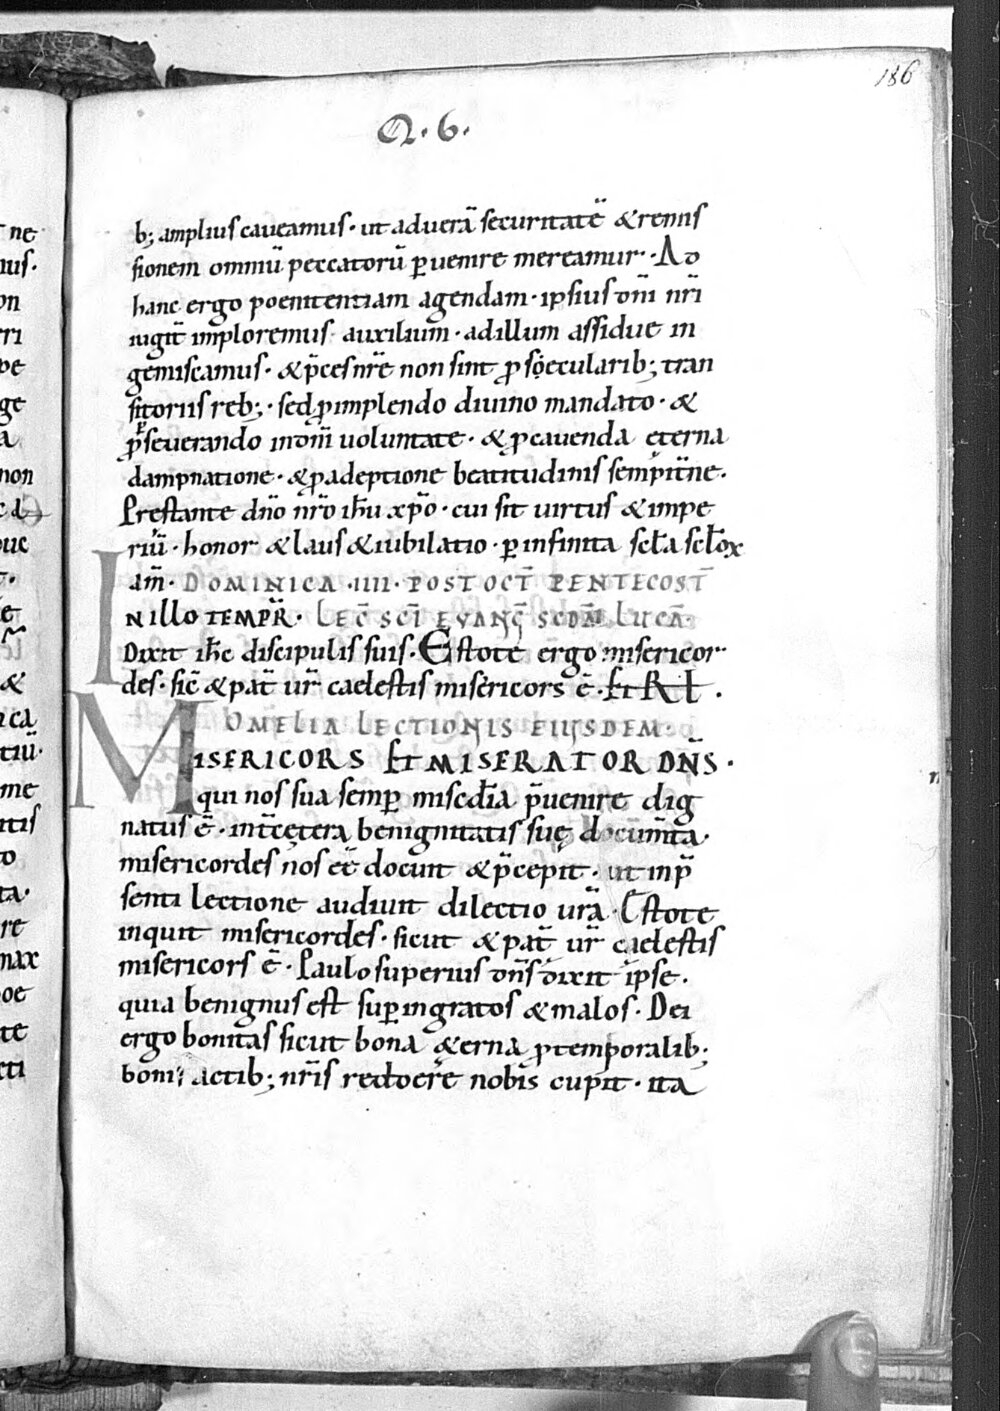 186
Q. 6.
b; amplius caveamus · ut aduerā securitatē & remis
sionem omniū peccatorū ꝑuenire mereamur · Ad
hanc ergo poenitentiam agendam · ipsius dnī nrī
iugit̄ imploremus auxilium · adillum assidue in
gemiscamus · & p̄ces nrē non sint ꝓ sęcularib; tran
sitoriis reb; · sed ꝓ implendo diuino mandato · &
ꝑseuerando in om̄i uoluntate · & ꝓ cauenda ęterna
dampnatione · & ꝓ adeptione beatitudinis sempit̄ne ·
Prestante dn̄o nr̄o ih̄u xp̄o · cui sit uirtus & impe
riū · honor & laus & iubilatio · ꝑ infinita sc̄la sc̄lox
am̄ · DOMINICA · IIII · POST OCT̄ PENTECOST̄
IN illo TEMPR̄ · LEC̄ SC̄I EVANḠ SCDM̄ LUCĀ
Dixit ih̄c discipulis suis · Estote ergo misericor
des · sic̄ & pat̄ ur̄ caelestis misericors ē · Et Rł ·
OMELIA LECTIONIS EIUSDEM
MISERICORS Et MISERATOR DN̄S ·
qui nos sua semꝑ misc̄dia p̄uenire dig
natus ē · int̄ cętera benignitatis suę docum̄ta ·
misericordes nos eē docuit & p̄cepit · ut inp̄
senti lectione audiuit dilectio ur̄a · Estote
inquit misericordes · sicut & pat̄ ur̄ caelestis
misericors ē · Paulo superius dn̄s dixit ipse ·
quia benignus est suꝑ ingratos & malos · Dei
ergo bonitas sicut bona &erna ꝓ temporalib;
bonis actib; nr̄is reddere nobis cupit · ita